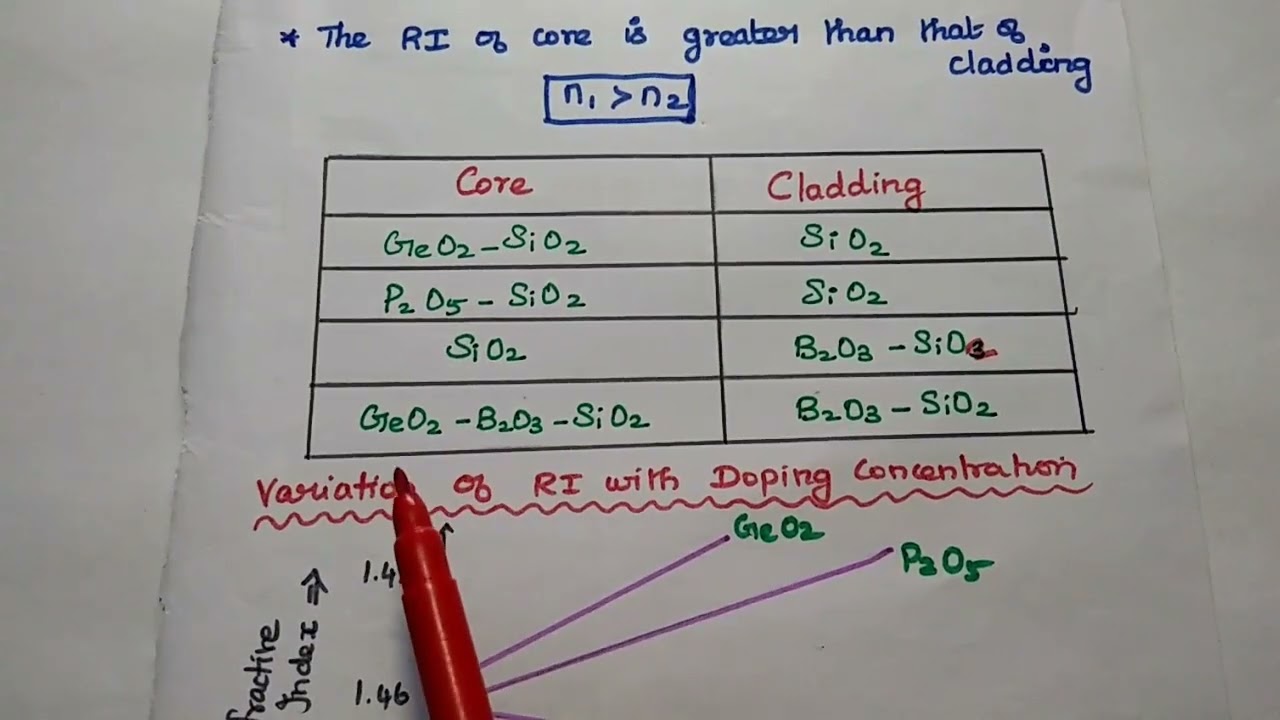 * The RI of core is greater than that of
cladding
n1 > n2
Core Cladding
GeO2 - SiO2 SiO2
P2O5 - SiO2 SiO2
SiO2 B2O3 - SiO2
GeO2 - B2O3 - SiO2 B2O3 - SiO2
Variation of RI with Doping Concentration
GeO2
P2O5
Index ⇒
1.46